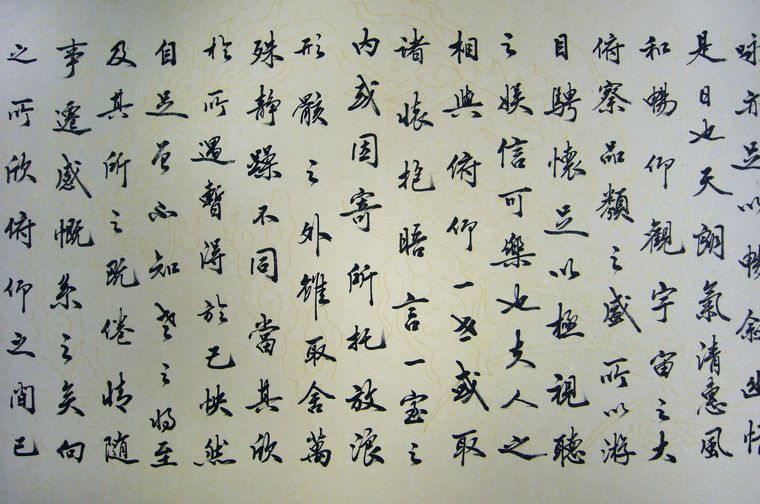 咏亦足以暢敘幽情
是日也天朗氣清惠風
和暢仰觀宇宙之大
俯察品類之盛所以游
目騁懷足以極視聽
之娛信可樂也夫人之
相與俯仰一世或取
諸懷抱晤言一室之
內或因寄所托放浪
形骸之外雖取舍萬
殊靜躁不同當其欣
於所遇暫得於己怏然
自足曾不知老之將至
及其所之既倦情隨
事遷感慨系之矣向
之所欣俯仰之間已